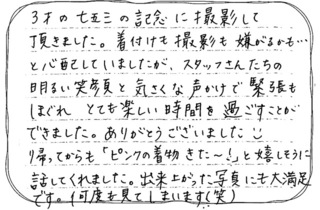 3才の七五三の記念に撮影して
頂きました。着付けも撮影も嫌がるかも…
と心配していましたが、スタッフさんたちの
明るい笑顔と気さくな声かけで緊張も
ほぐれ とても楽しい時間を過ごすことが
できました。ありがとうございました
帰ってからも「ピンクの着物きた〜!」と嬉しそうに
話してくれました。出来上がった写真にも大満足
です。何度も見てしまいます(笑)